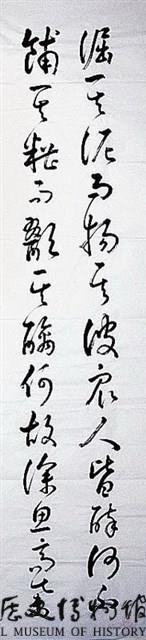 淈其泥而揚其波衆人皆醉何不
餔其糟而歠其醨何故深思高舉
歷史博物館
L MUSEUM OF HISTORY